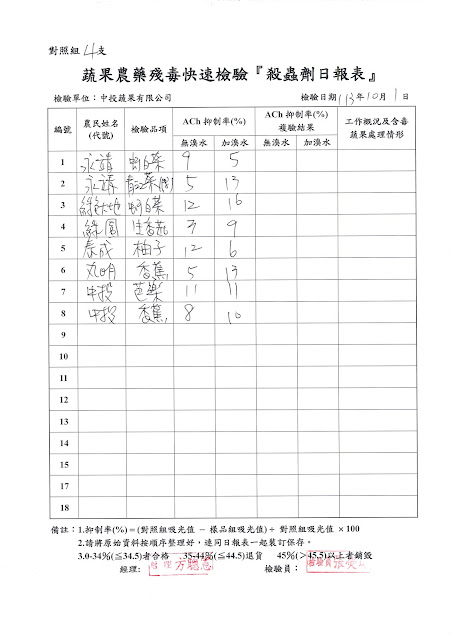 對照組 4支
蔬果農藥殘毒快速檢驗『殺蟲劑日報表』
檢驗單位：中投蔬果有限公司 檢驗日期 113年10月1日
編號 農民姓名(代號) 檢驗品項 ACh 抑制率(%) ACh 抑制率(%)複驗結果 工作概況及含毒蔬果處理情形
無溴水 加溴水 無溴水 加溴水
1 永靖 蚵白菜 9 5
2 永靖 青江菜 5 13
3 綠 地 蚵白菜 12 16
4 綠圓 生香菇 3 9
5 泰成 柚子 12 6
6 丸明 香蕉 5 13
7 中投 芭樂 11 11
8 中投 香蕉 8 10
9
10
11
12
13
14
15
16
17
18
備註：1.抑制率(%)＝(對照組吸光值 － 樣品組吸光值)÷ 對照組吸光值 ×100
2.請將原始資料按順序整理好，連同日報表一起裝訂保存。
3.0-34%(≦34.5)者合格 35-44%(≦44.5)退貨 45%(＞45.5)以上者銷毀
經理： 經理 方聰 檢驗員： 檢驗員